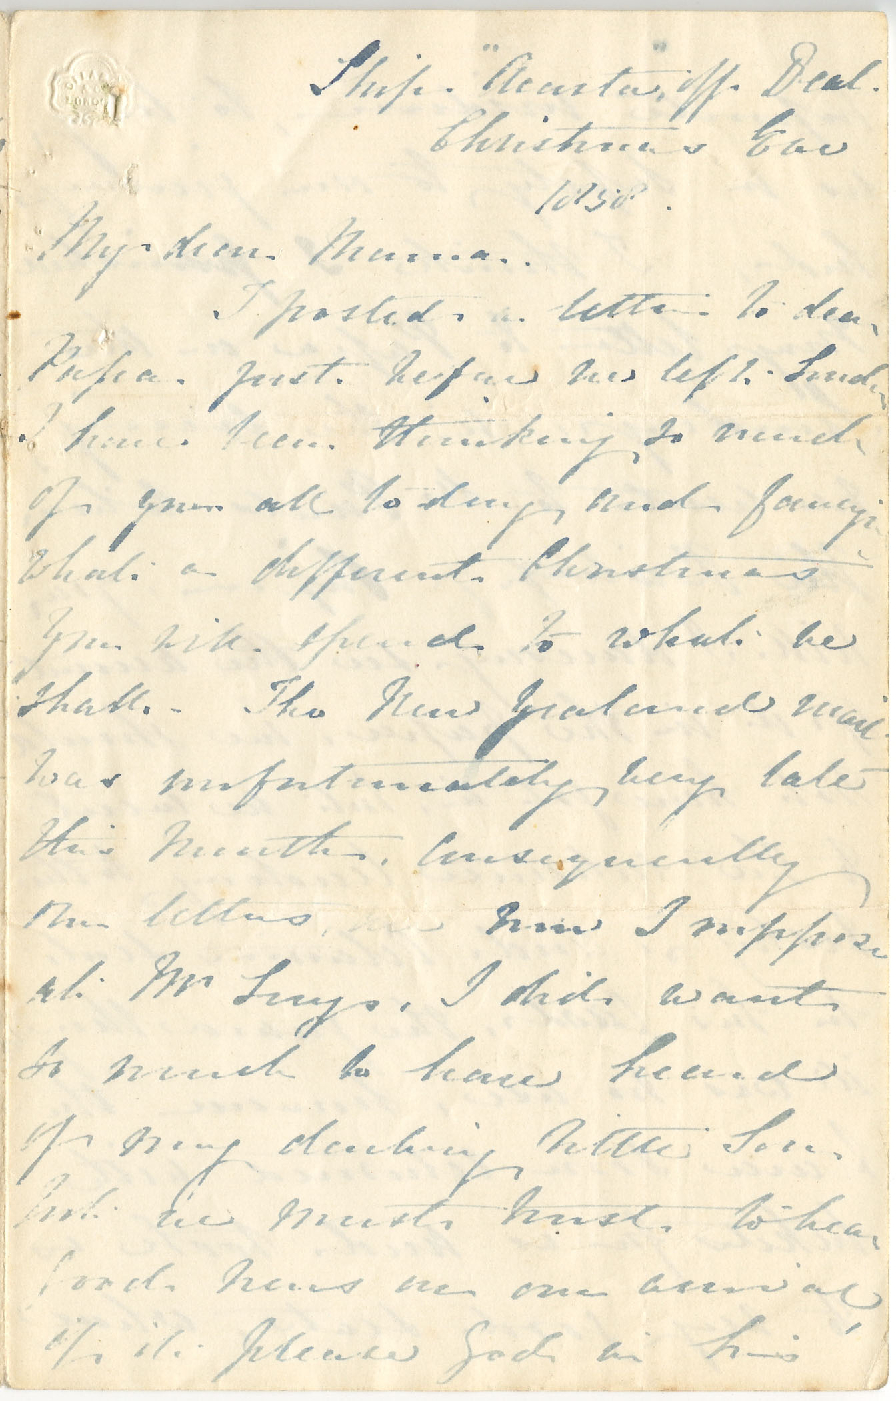 Ship "Acasta", off Deal.
Christmas Eve
1858.
My dear Mama.
I posted a letter to dear
Papa just before we left London
I have been thinking so much
of you all to day, and fancying
what a different Christmas
you will spend to what we
shall. The New Zealand mail
was unfortunately very late
this month, consequently
our letters, are now I suppose
at Mr Luys. I did want
so much to have heard
of my darling little Son.
but we must trust to hear
good news on our arrival,
if it please God in his